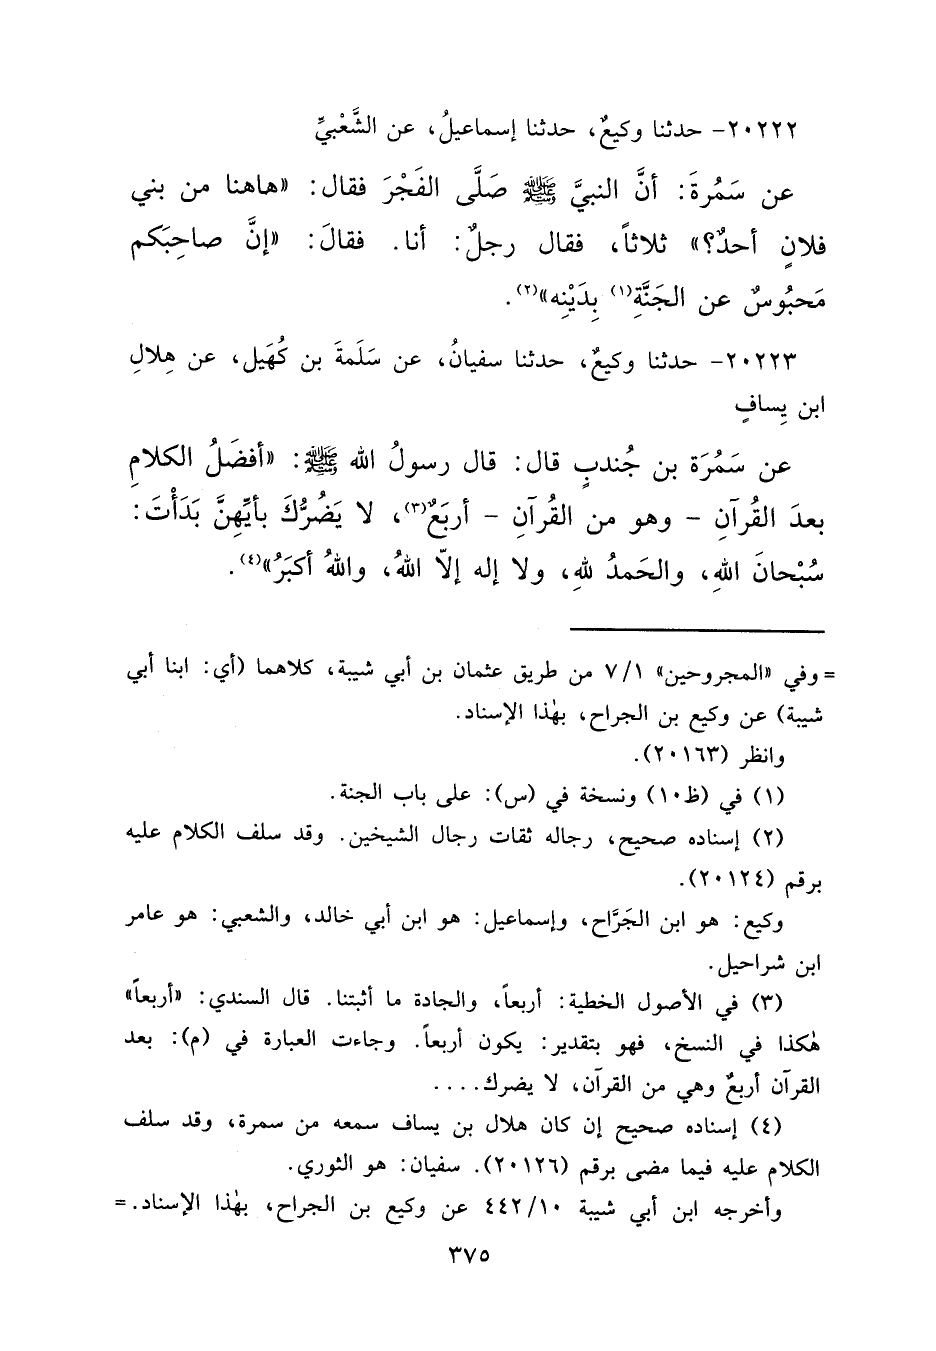 ٢٠٢٢٢- حدثنا وكيعٌ، حدثنا إسماعيلُ، عن الشَّعْبيِّ
عن سَمُرةَ: أنَّ النبيَّ ﷺ صَلَّى الفَجْرَ فقال: «هاهنا من بني
فلانٍ أحدٌ؟» ثلاثاً، فقال رجلٌ: أنا. فقالَ: «إنَّ صاحِبَكم
مَحبُوسٌ عن الجَنَّةِ(١) بِدَيْنِه»(٢).
٢٠٢٢٣- حدثنا وكيعٌ، حدثنا سفيانُ، عن سَلَمةَ بن كُهَيل، عن هِلالِ
ابن يِسافٍ
عن سَمُرَة بن جُندبٍ قال: قال رسولُ الله ﷺ: «أفضَلُ الكلامِ
بعدَ القُرآنِ - وهو من القُرآنِ - أربَعٌ(٣)، لا يَضُرُّكَ بأيِّهِنَّ بَدَأْتَ:
سُبْحانَ اللهِ، والحَمدُ للهِ، ولا إله إلّا اللهُ، واللهُ أكبَرُ»(٤).
= وفي «المجروحين» ٧/١ من طريق عثمان بن أبي شيبة، كلاهما (أي: ابنا أبي
شيبة) عن وكيع بن الجراح، بهٰذا الإسناد.
وانظر (٢٠١٦٣).
(١) في (ظ١٠) ونسخة في (س): على باب الجنة.
(٢) إسناده صحيح، رجاله ثقات رجال الشيخين. وقد سلف الكلام عليه
برقم (٢٠١٢٤).
وكيع: هو ابن الجَرَّاح، وإسماعيل: هو ابن أبي خالد، والشعبي: هو عامر
ابن شراحيل.
(٣) في الأصول الخطية: أربعاً، والجادة ما أثبتنا. قال السندي: «أربعاً»
هٰكذا في النسخ، فهو بتقدير: يكون أربعاً. وجاءت العبارة في (م): بعد
القرآن أربعٌ وهي من القرآن، لا يضرك....
(٤) إسناده صحيح إن كان هلال بن يساف سمعه من سمرة، وقد سلف
الكلام عليه فيما مضى برقم (٢٠١٢٦). سفيان: هو الثوري.
وأخرجه ابن أبي شيبة ٤٤٢/١٠ عن وكيع بن الجراح، بهٰذا الإسناد. =
٣٧٥